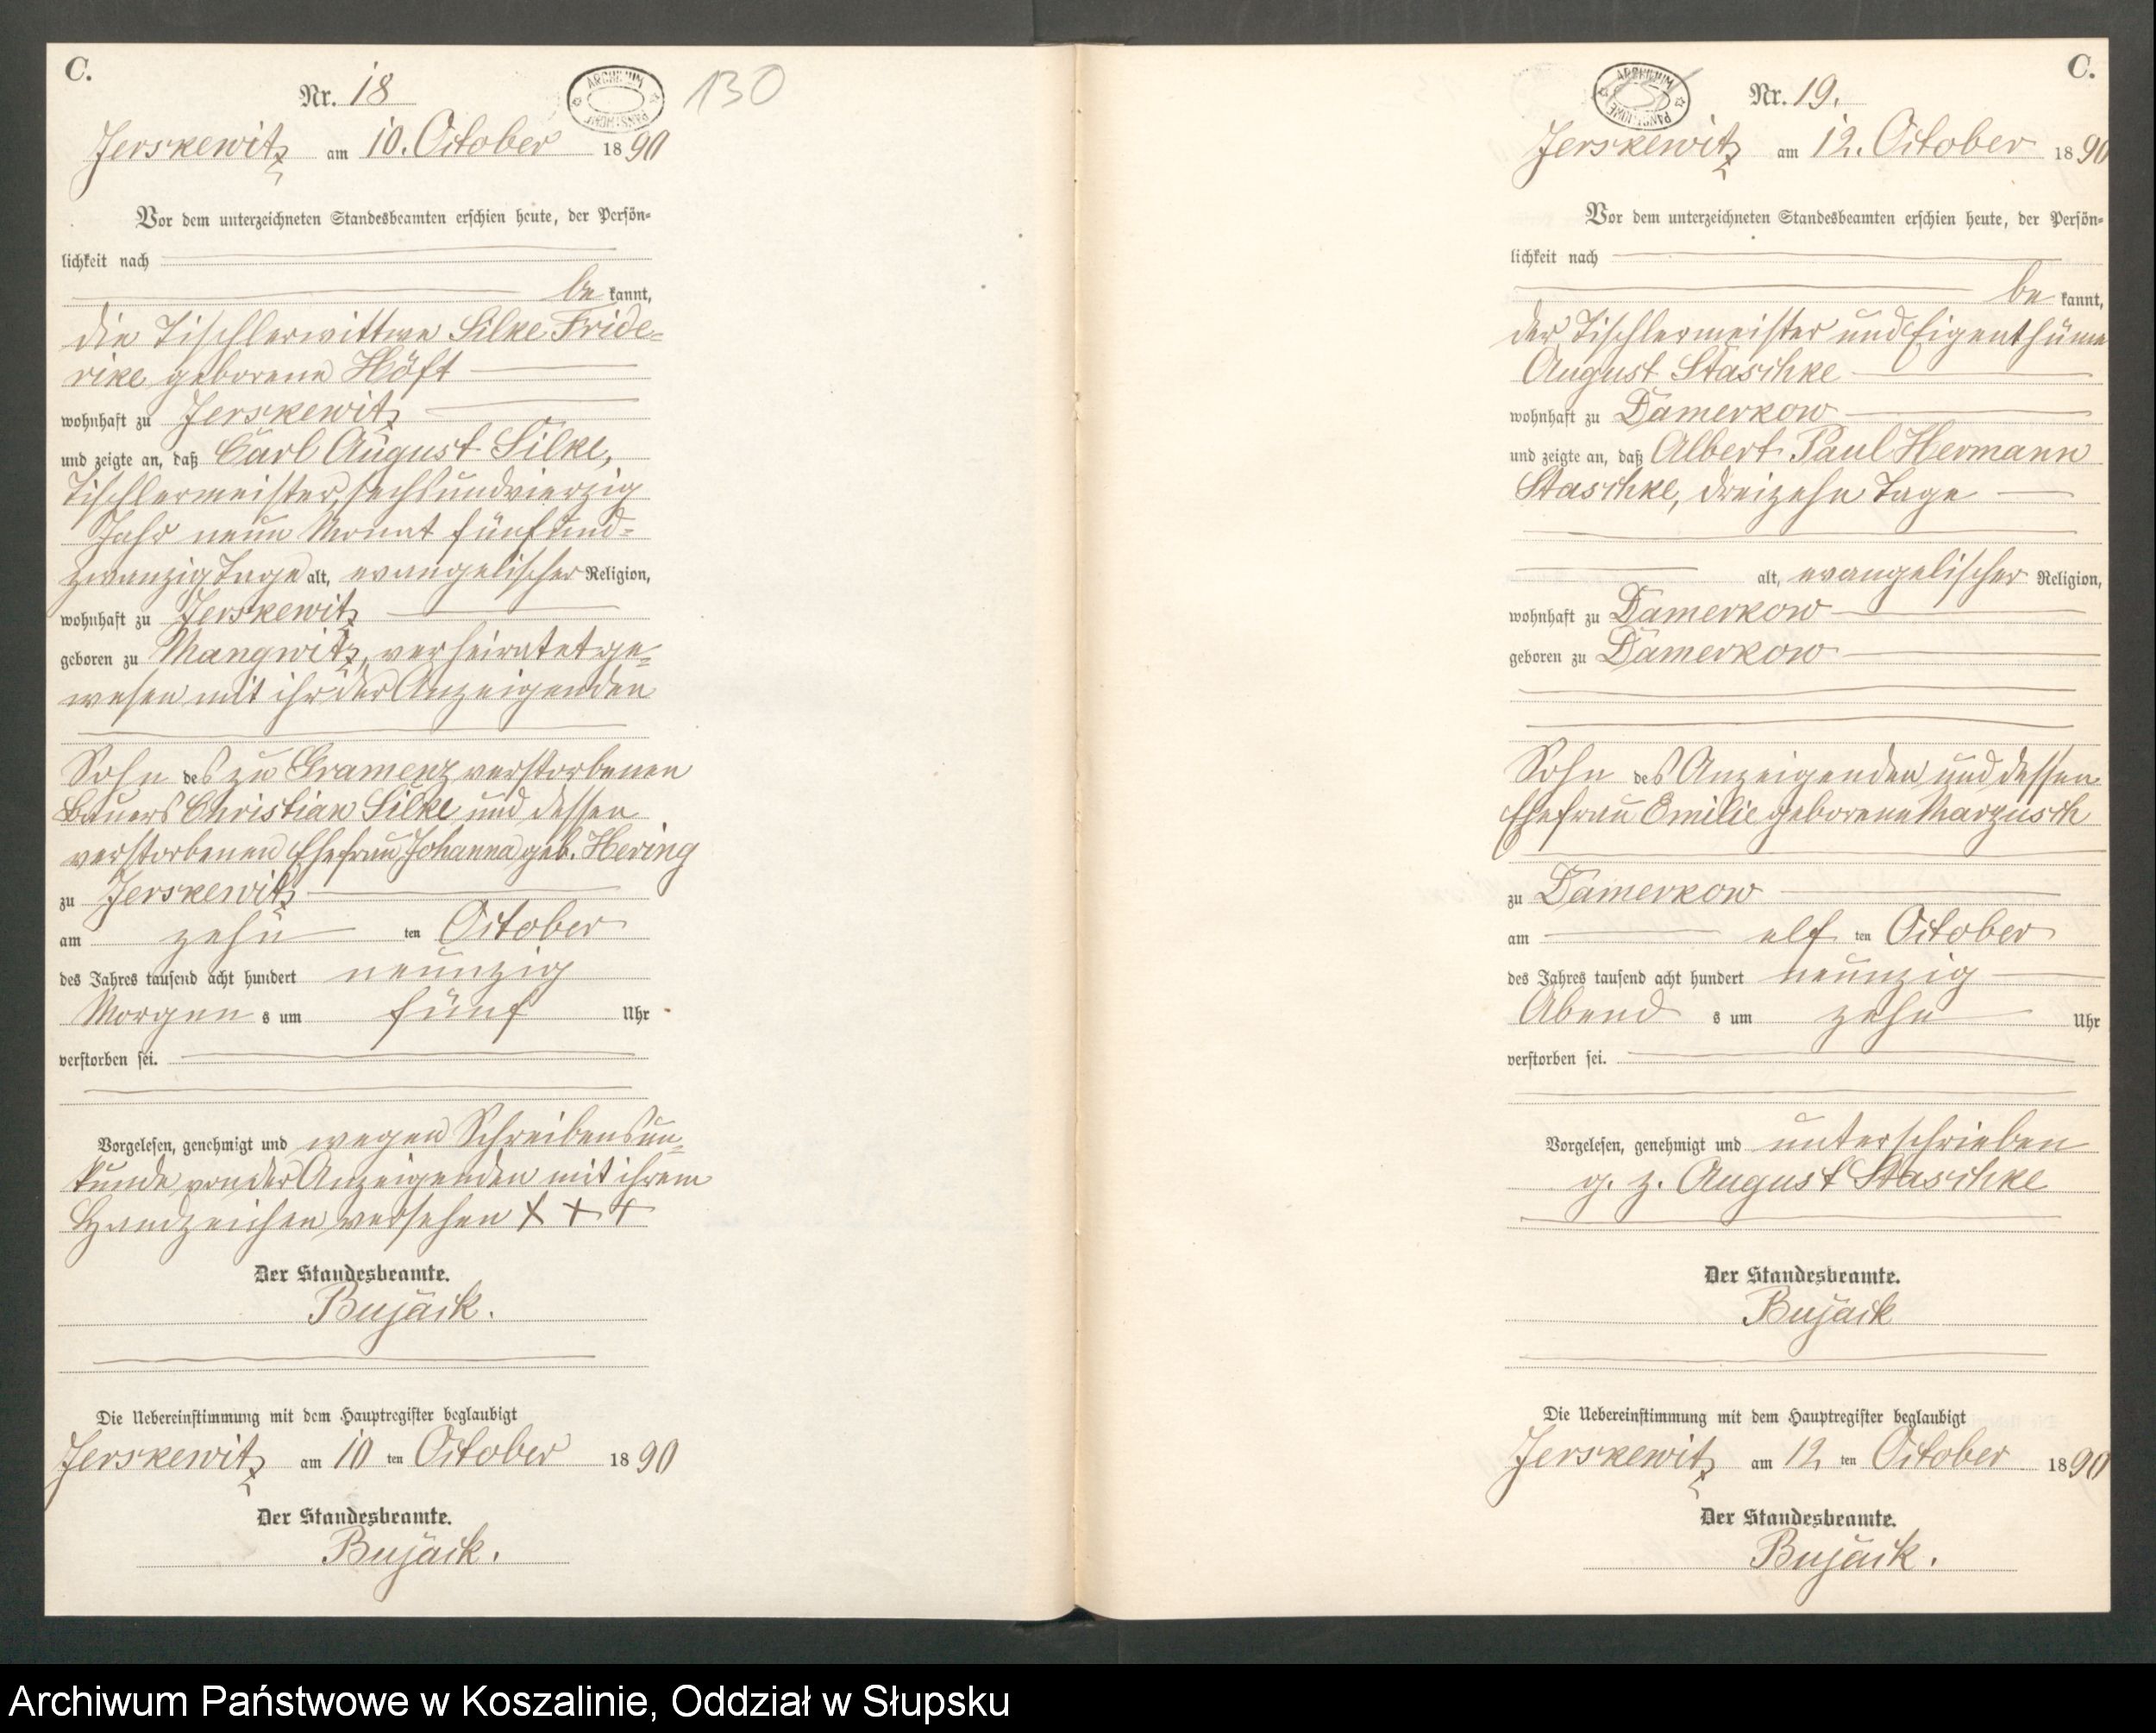 C.
Nr. 18
ARCHIWUM PAŃSTWOWE
130
Jerskewitz am 10. October 1890
Vor dem unterzeichneten Standesbeamten erschien heute, der Persön-
lichkeit nach
be kannt,
die Tischlerwittwe Silke Fride-
rike geborene Höft
wohnhaft zu Jerskewitz
und zeigte an, daß Carl August Silke,
Tischlermeister, sechsundvierzig
Jahr neun Monat fünfund-
zwanzig Tage alt, evangelischer Religion,
wohnhaft zu Jerskewitz
geboren zu Mangwitz, verheiratet ge-
wesen mit ihr der Anzeigenden
Sohn des zu Gramenz verstorbenen
Bauers Christian Silke und dessen
verstorbenen Ehefrau Johanna geb. Hering
zu Jerskewitz
am zehn ten October
des Jahres tausend acht hundert neunzig
Morgen s um fünf Uhr
verstorben sei.
Vorgelesen, genehmigt und wegen Schreibensun-
kunde von der Anzeigenden mit ihrem
Handzeichen versehen + + +
Der Standesbeamte.
Bujack.
Die Uebereinstimmung mit dem Hauptregister beglaubigt
Jerskewitz am 10 ten October 1890
Der Standesbeamte.
Bujack.
C.
Nr. 19.
ARCHIWUM PAŃSTWOWE
Jerskewitz am 12. October 1890
Vor dem unterzeichneten Standesbeamten erschien heute, der Persön-
lichkeit nach
be kannt,
der Tischlermeister und Eigenthüme
August Staschke
wohnhaft zu Damerkow
und zeigte an, daß Albert Paul Hermann
Staschke, dreizehn Tage
alt, evangelischer Religion,
wohnhaft zu Damerkow
geboren zu Damerkow
Sohn des Anzeigenden und dessen
Ehefrau Emilie geborene Marzusch
zu Damerkow
am elf ten October
des Jahres tausend acht hundert neunzig
Abend s um zehn Uhr
verstorben sei.
Vorgelesen, genehmigt und unterschrieben
g. z. August Staschke
Der Standesbeamte.
Bujack
Die Uebereinstimmung mit dem Hauptregister beglaubigt
Jerskewitz am 12 ten October 1890
Der Standesbeamte.
Bujack.
Archiwum Państwowe w Koszalinie, Oddział w Słupsku